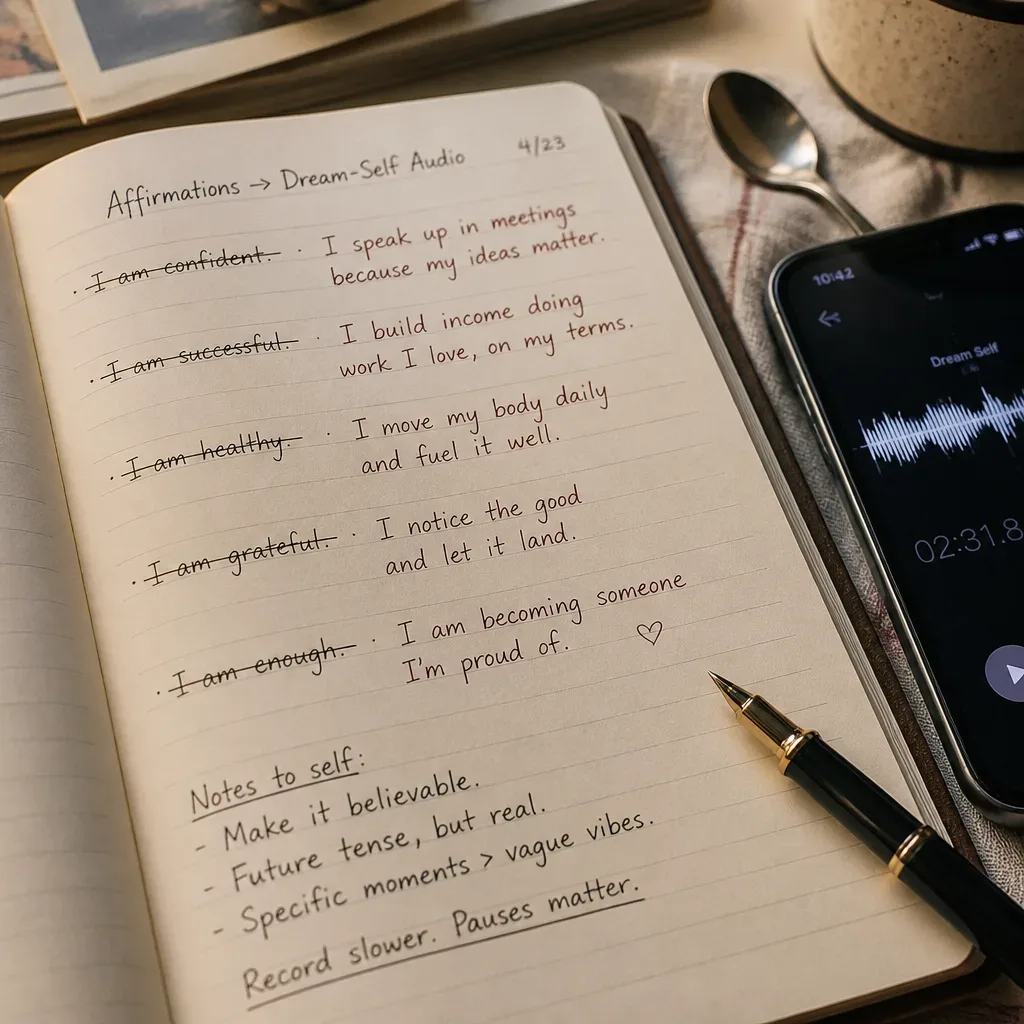 Affirmations → Dream-Self Audio 4/23
· I am confident. · I speak up in meetings
because my ideas matter.
· I am successful. · I build income doing
work I love, on my terms.
· I am healthy. · I move my body daily
and fuel it well.
· I am grateful. · I notice the good
and let it land.
· I am enough. · I am becoming someone
I'm proud of. ♡
Notes to self:
- Make it believable.
- Future tense, but real.
- Specific moments > vague vibes.
Record slower. Pauses matter.
10:42
Dream Self
02:31.8